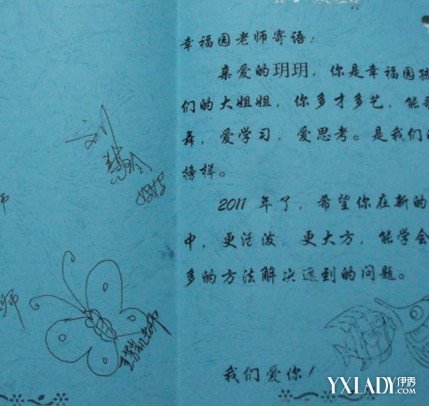 幸福园老师寄语:
亲爱的玥玥,你是幸福园孩
们的大姐姐,你多才多艺,能歌
舞,爱学习,爱思考。是我们的
榜样。
2011 年了,希望你在新的
中,更活泼,更大方,能学会
多的方法解决遇到的问题。
我们爱你!
刘
师
YXLADY.伊秀